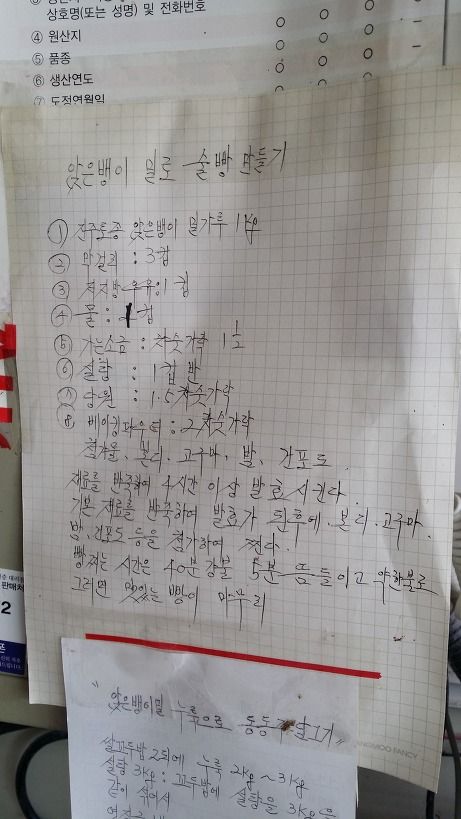 상호명(또는 성명) 및 전화번호
④ 원산지
⑤ 품종
⑥ 생산연도
⑦ 도정연월일
앉은뱅이 밀로 술빵 만들기
① 진주토종 앉은뱅이 밀가루 1kg
② 막걸리 : 3컵
③ 저지방 우유:1컵
④ 물 : 1컵
⑤ 가는소금 : 차숫가락 1½
⑥ 설탕 : 1컵 반
⑦ 당원 : 1.5차숫가락
⑧ 베이킹파우더 : 2차숫가락
첨가물, 본디, 고구마, 밤, 건포도
재료를 반죽하여 4시간 이상 발효 시킨다.
기본 재료를 반죽하여 발효가 된후에 본디, 고구마,
밤, 건포도 등을 첨가하여 찐다.
빵 찌는 시간은 40분 강불 5분 뜸들이고 약한불로
그러면 맛있는 빵이 마무리
MOO FANCY
판매처
2
"앉은뱅이밀 누룩으로 동동주 담그기"
쌀꼬두밥 2되에 누룩 2kg~3kg
설탕 3kg : 꼬두밥에 설탕을 3kg을
같이 섞어서